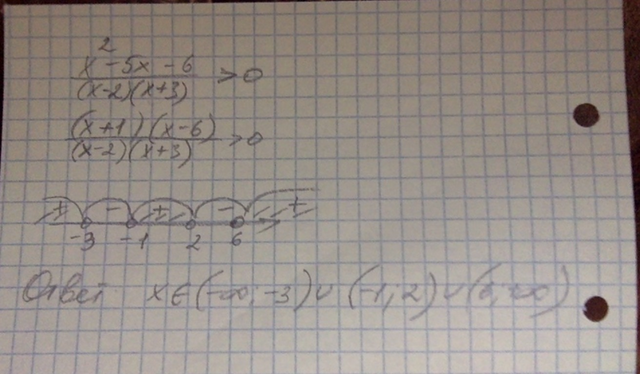 x² - 5x - 6 / (x-2)(x+3) > 0
(x+1)(x-6) / (x-2)(x+3) > 0
+ - + - +
-3 -1 2 6
Ответ x ∈ (-∞; -3) ∪ (-1; 2) ∪ (6; +∞)